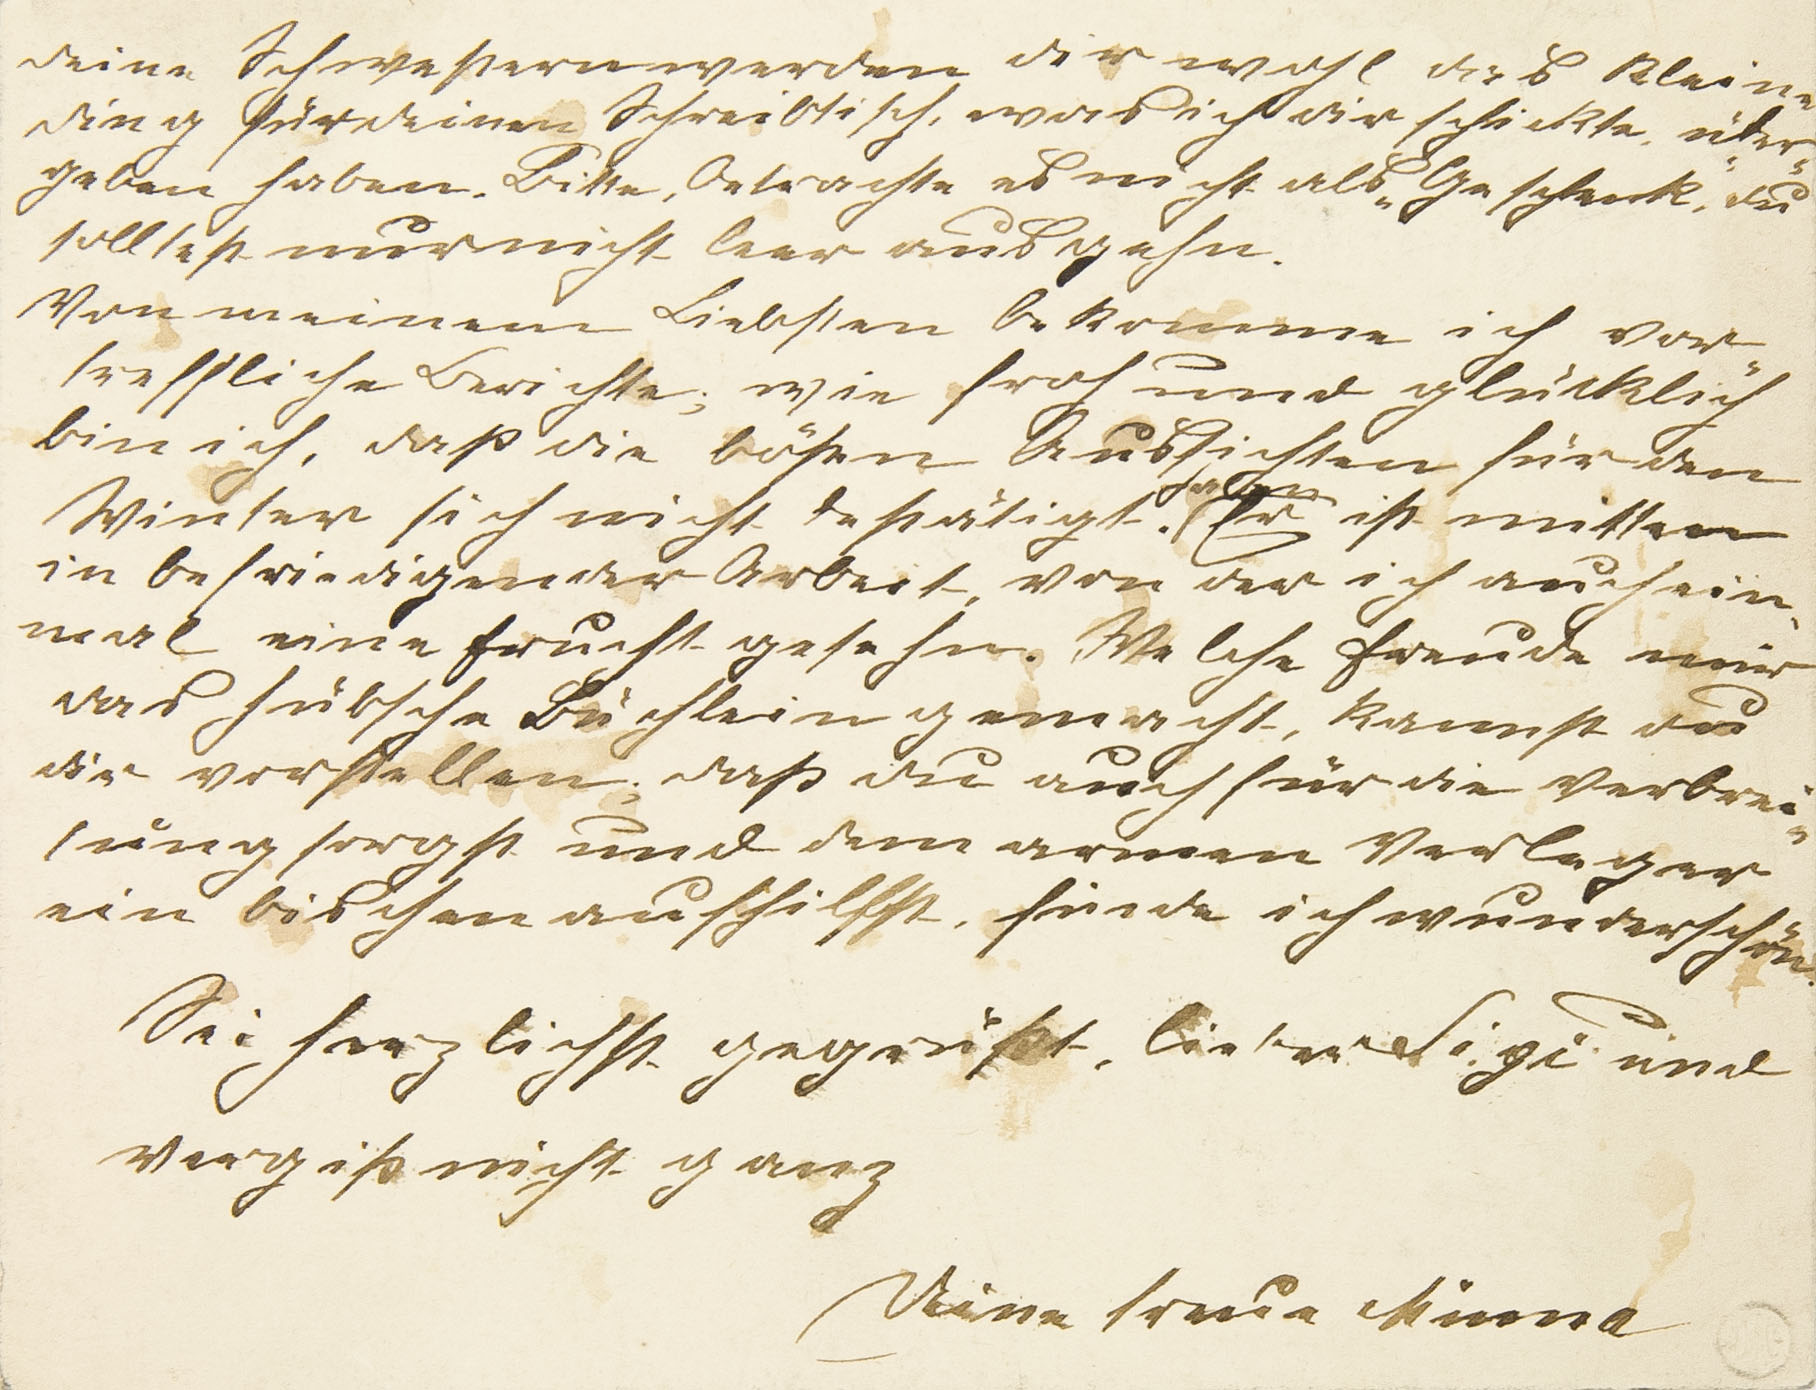 deine Schwestern werden dir wohl das kleine
Ding für deinen Schreibtisch, was ich dir schickte, über-
geben haben. Bitte, betrachte es nicht als „Geschenk“, du
solltest nur nicht leer ausgehn.
Von meinem Liebsten bekomme ich vor-
treffliche Berichte; wie froh und glücklich
bin ich, daß die bösen Aussichten für den
Winter sich nicht bestätigt haben. Er ist mitten
in befriedigender Arbeit, von der ich auch ein-
mal eine Frucht gesehn. Welche Freude mir
das hübsche Büchlein gemacht, kannst du
dir vorstellen; daß du auch für die Verbrei-
tung sorgst und dem armen Verleger
ein bischen aufhilfst, finde ich wunderschön.
Sei herzlichst gegrüßt, lieber Sigi und
vergiß nicht ganz
Deine treue Minna